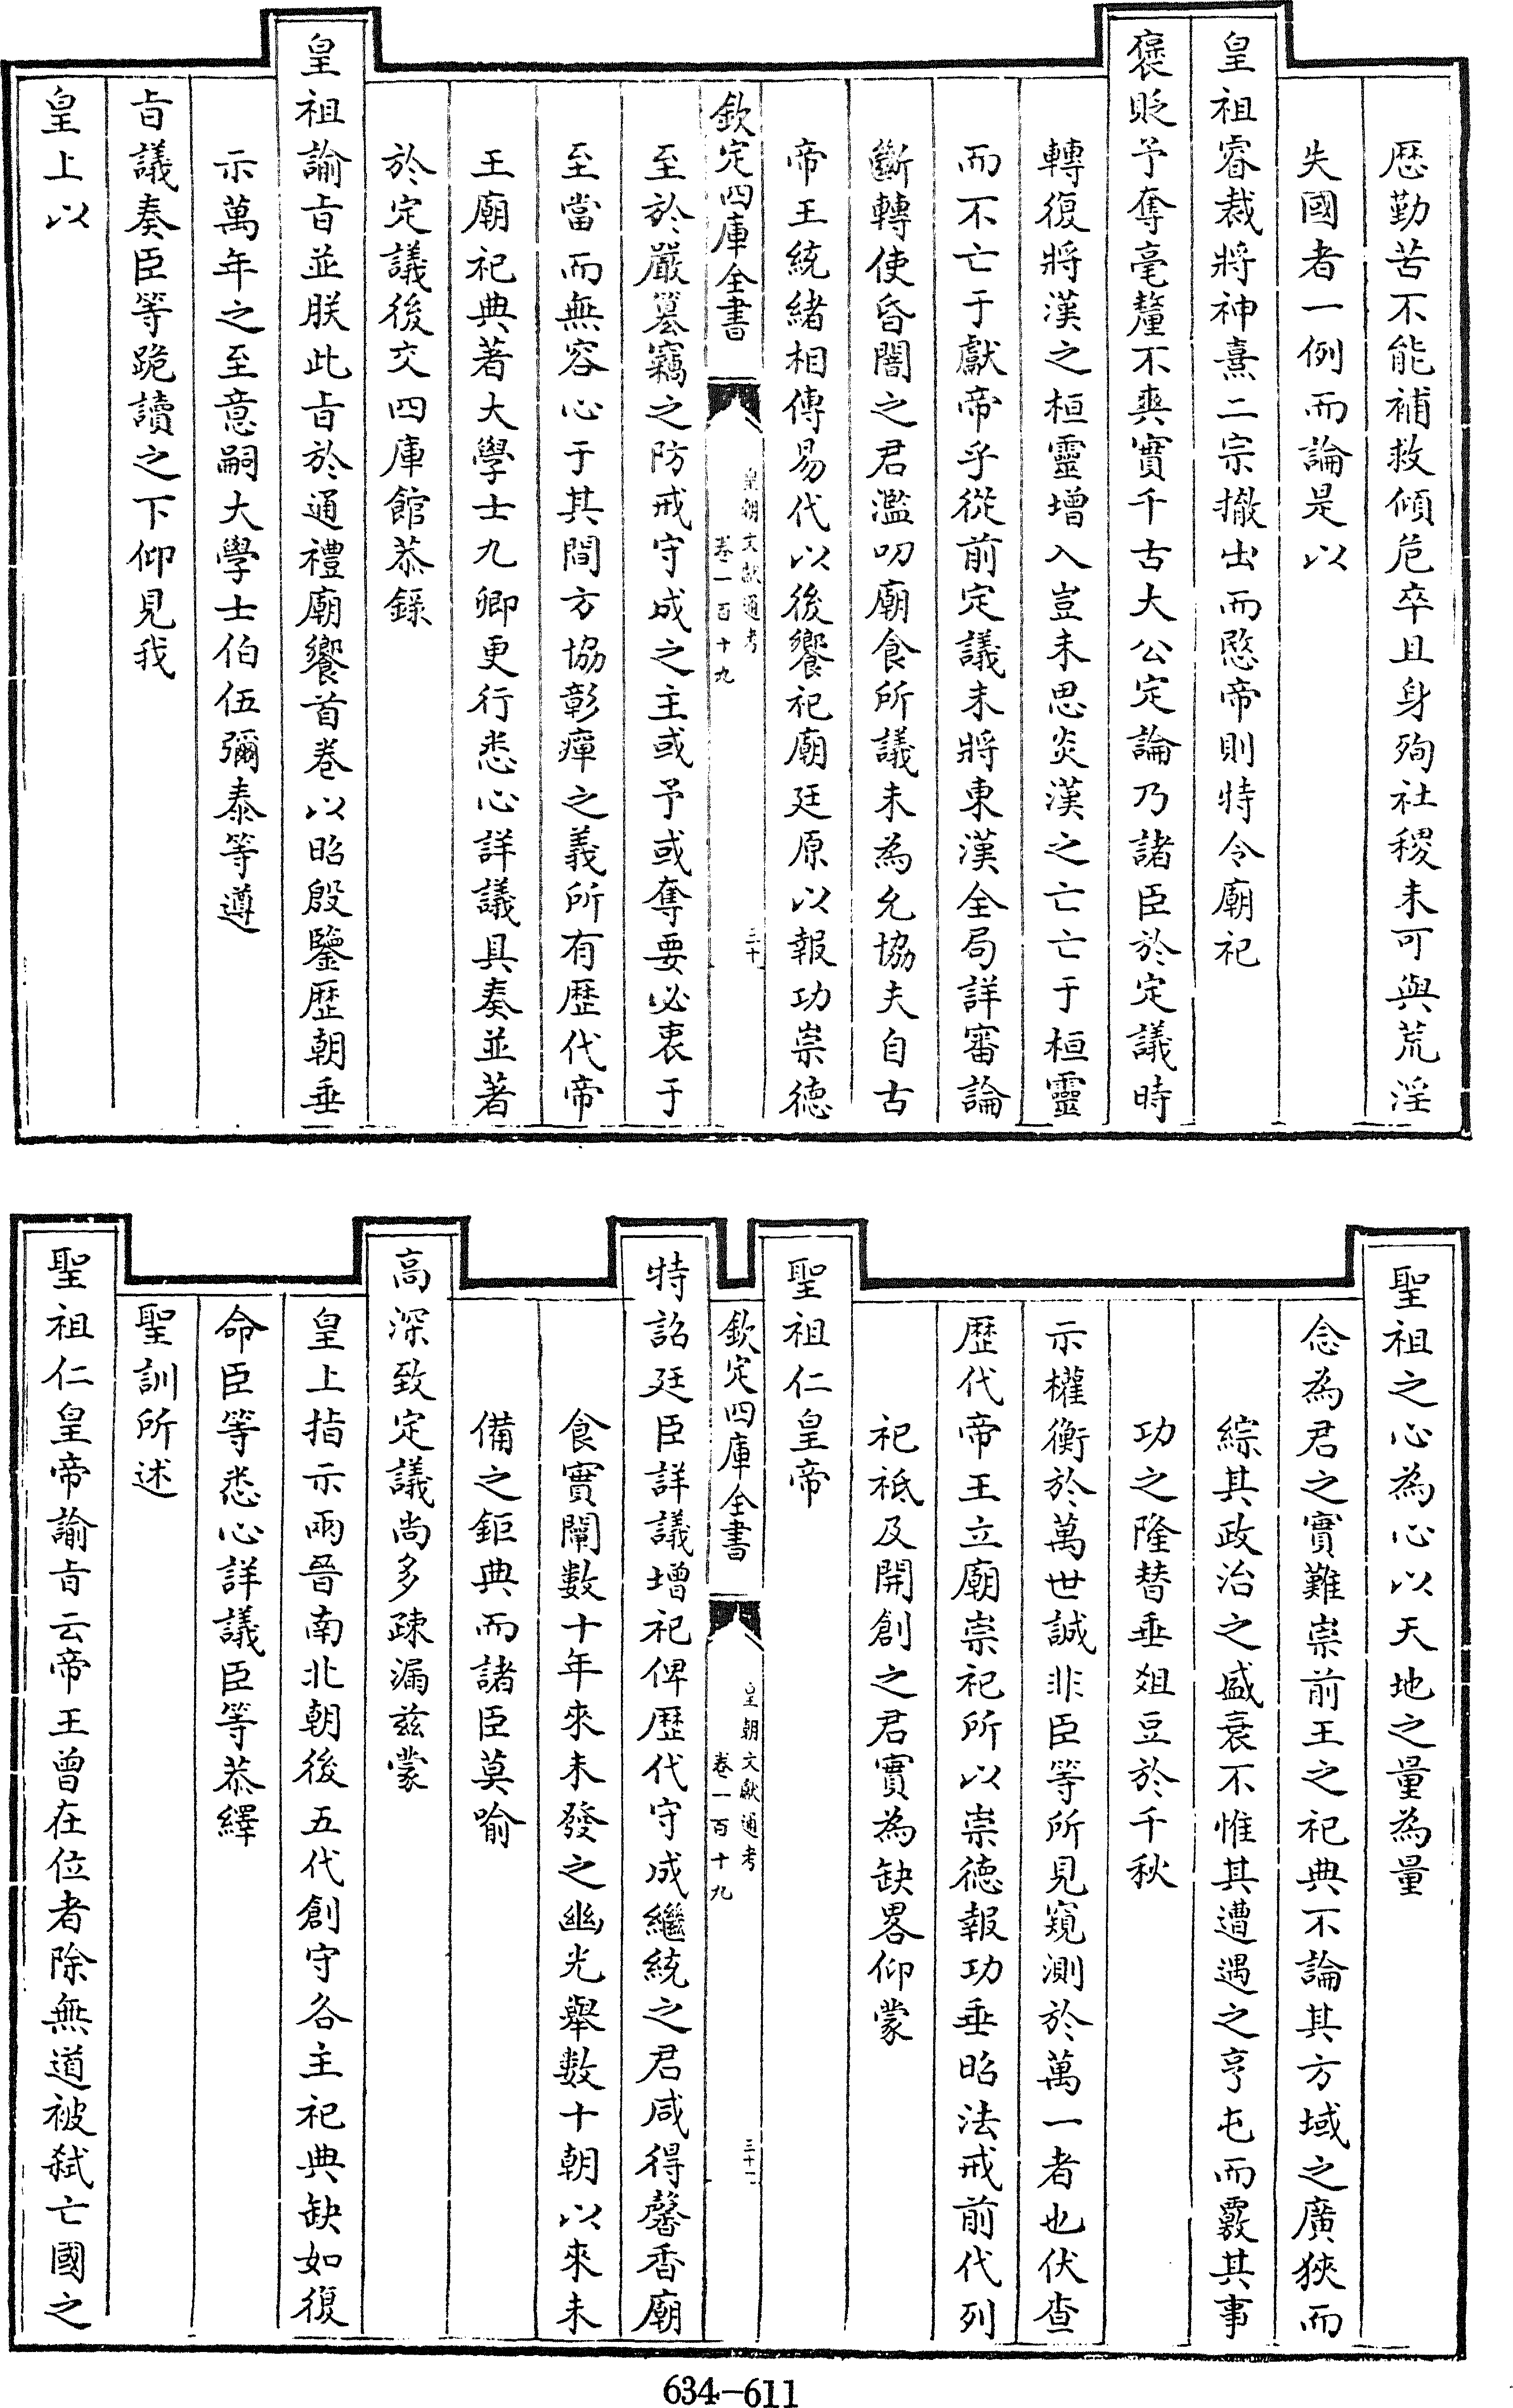 歴勤苦不能補救傾危卒且身殉社稷未可與荒淫
失國者一例而論是以
皇祖睿裁將神熹二宗撤出而愍帝則特令廟祀
褒貶予奪毫釐不爽實千古大公定論乃諸臣於定議時
轉復將漢之桓靈增入豈未思炎漢之亡亡于桓靈
而不亡于獻帝乎從前定議未將東漢全局詳審論
斷轉使昏闇之君濫叨廟食所議未為允協夫自古
帝王統緒相傳易代以後饗祀廟廷原以報功崇德
欽定四庫全書
皇朝文獻通考
卷一百十九
三十
至於嚴簒竊之防戒守成之主或予或奪要必衷于
至當而無容心于其間方協彰癉之義所有歴代帝
王廟祀典著大學士九卿更行悉心詳議具奏並著
於定議後交四庫館恭錄
皇祖諭㫖並朕此㫖於通禮廟饗首卷以昭殷鑒歴朝垂
示萬年之至意嗣大學士伯伍彌泰等遵
㫖議奏臣等跪讀之下仰見我
皇上以
聖祖之心為心以天地之量為量
念為君之實難崇前王之祀典不論其方域之廣狹而
綜其政治之盛衰不惟其遭遇之亨屯而覈其事
功之隆替垂俎豆於千秋
示權衡於萬世誠非臣等所見窺測於萬一者也伏查
歴代帝王立廟崇祀所以崇德報功垂昭法戒前代列
祀祗及開創之君實為缺畧仰蒙
聖祖仁皇帝
欽定四庫全書
皇朝文獻通考
卷一百十九
三十一
特詔廷臣詳議增祀俾歴代守成繼統之君咸得馨香廟
食實闡數十年來未發之幽光舉數十朝以來未
備之鉅典而諸臣莫喻
高深致定議尚多疎漏兹蒙
皇上指示兩晉南北朝後五代創守各主祀典缺如復
命臣等悉心詳議臣等恭繹
聖訓所述
聖祖仁皇帝諭㫖云帝王曾在位者除無道被弑亡國之
634-611